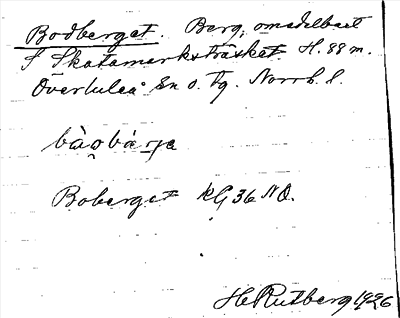 Bodberget. Berg, omedelbart
f Skatamarksträsket. H. 88 m.
Överluleå Sn o. Tg. Norrb. l.
Boberget KG 36 NO.
H Rutberg 1926